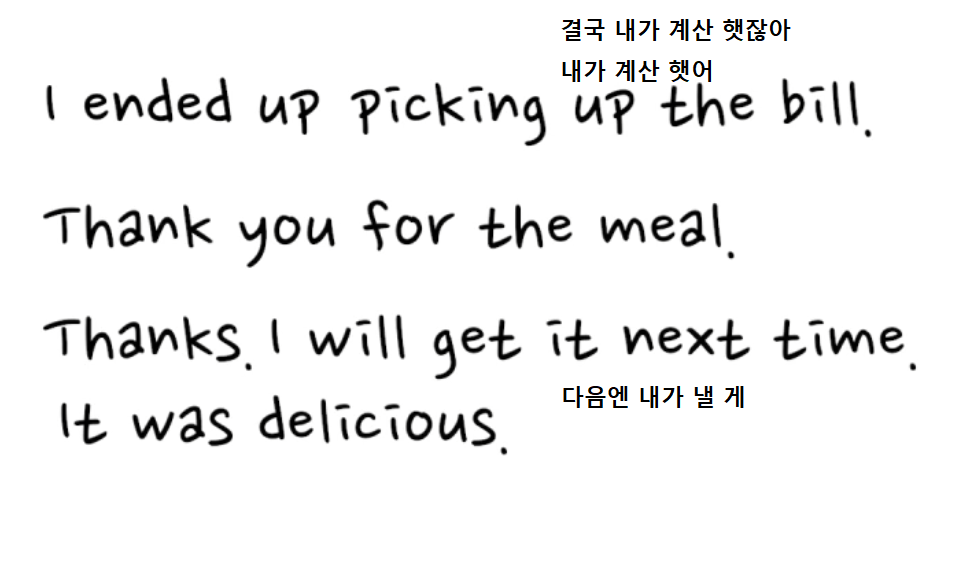 결국 내가 계산 햇잖아
내가 계산 햇어
I ended up picking up the bill.
Thank you for the meal.
Thanks. I will get it next time.
다음엔 내가 낼 게
It was delicious.